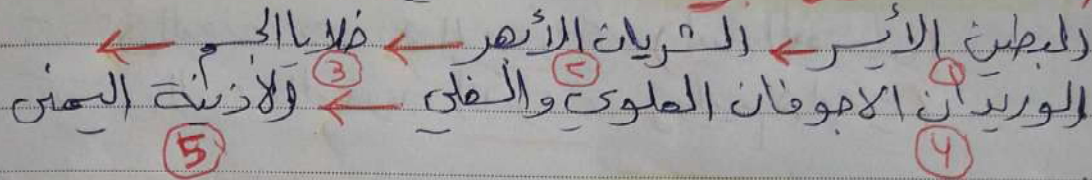 البطين الأيسر ← الشريان الأبهر ← خلايا الجسم ←
① ② ③
الوريدان الاجوفان العلوي والسفلي ← والأذينة اليمنى
④ ⑤